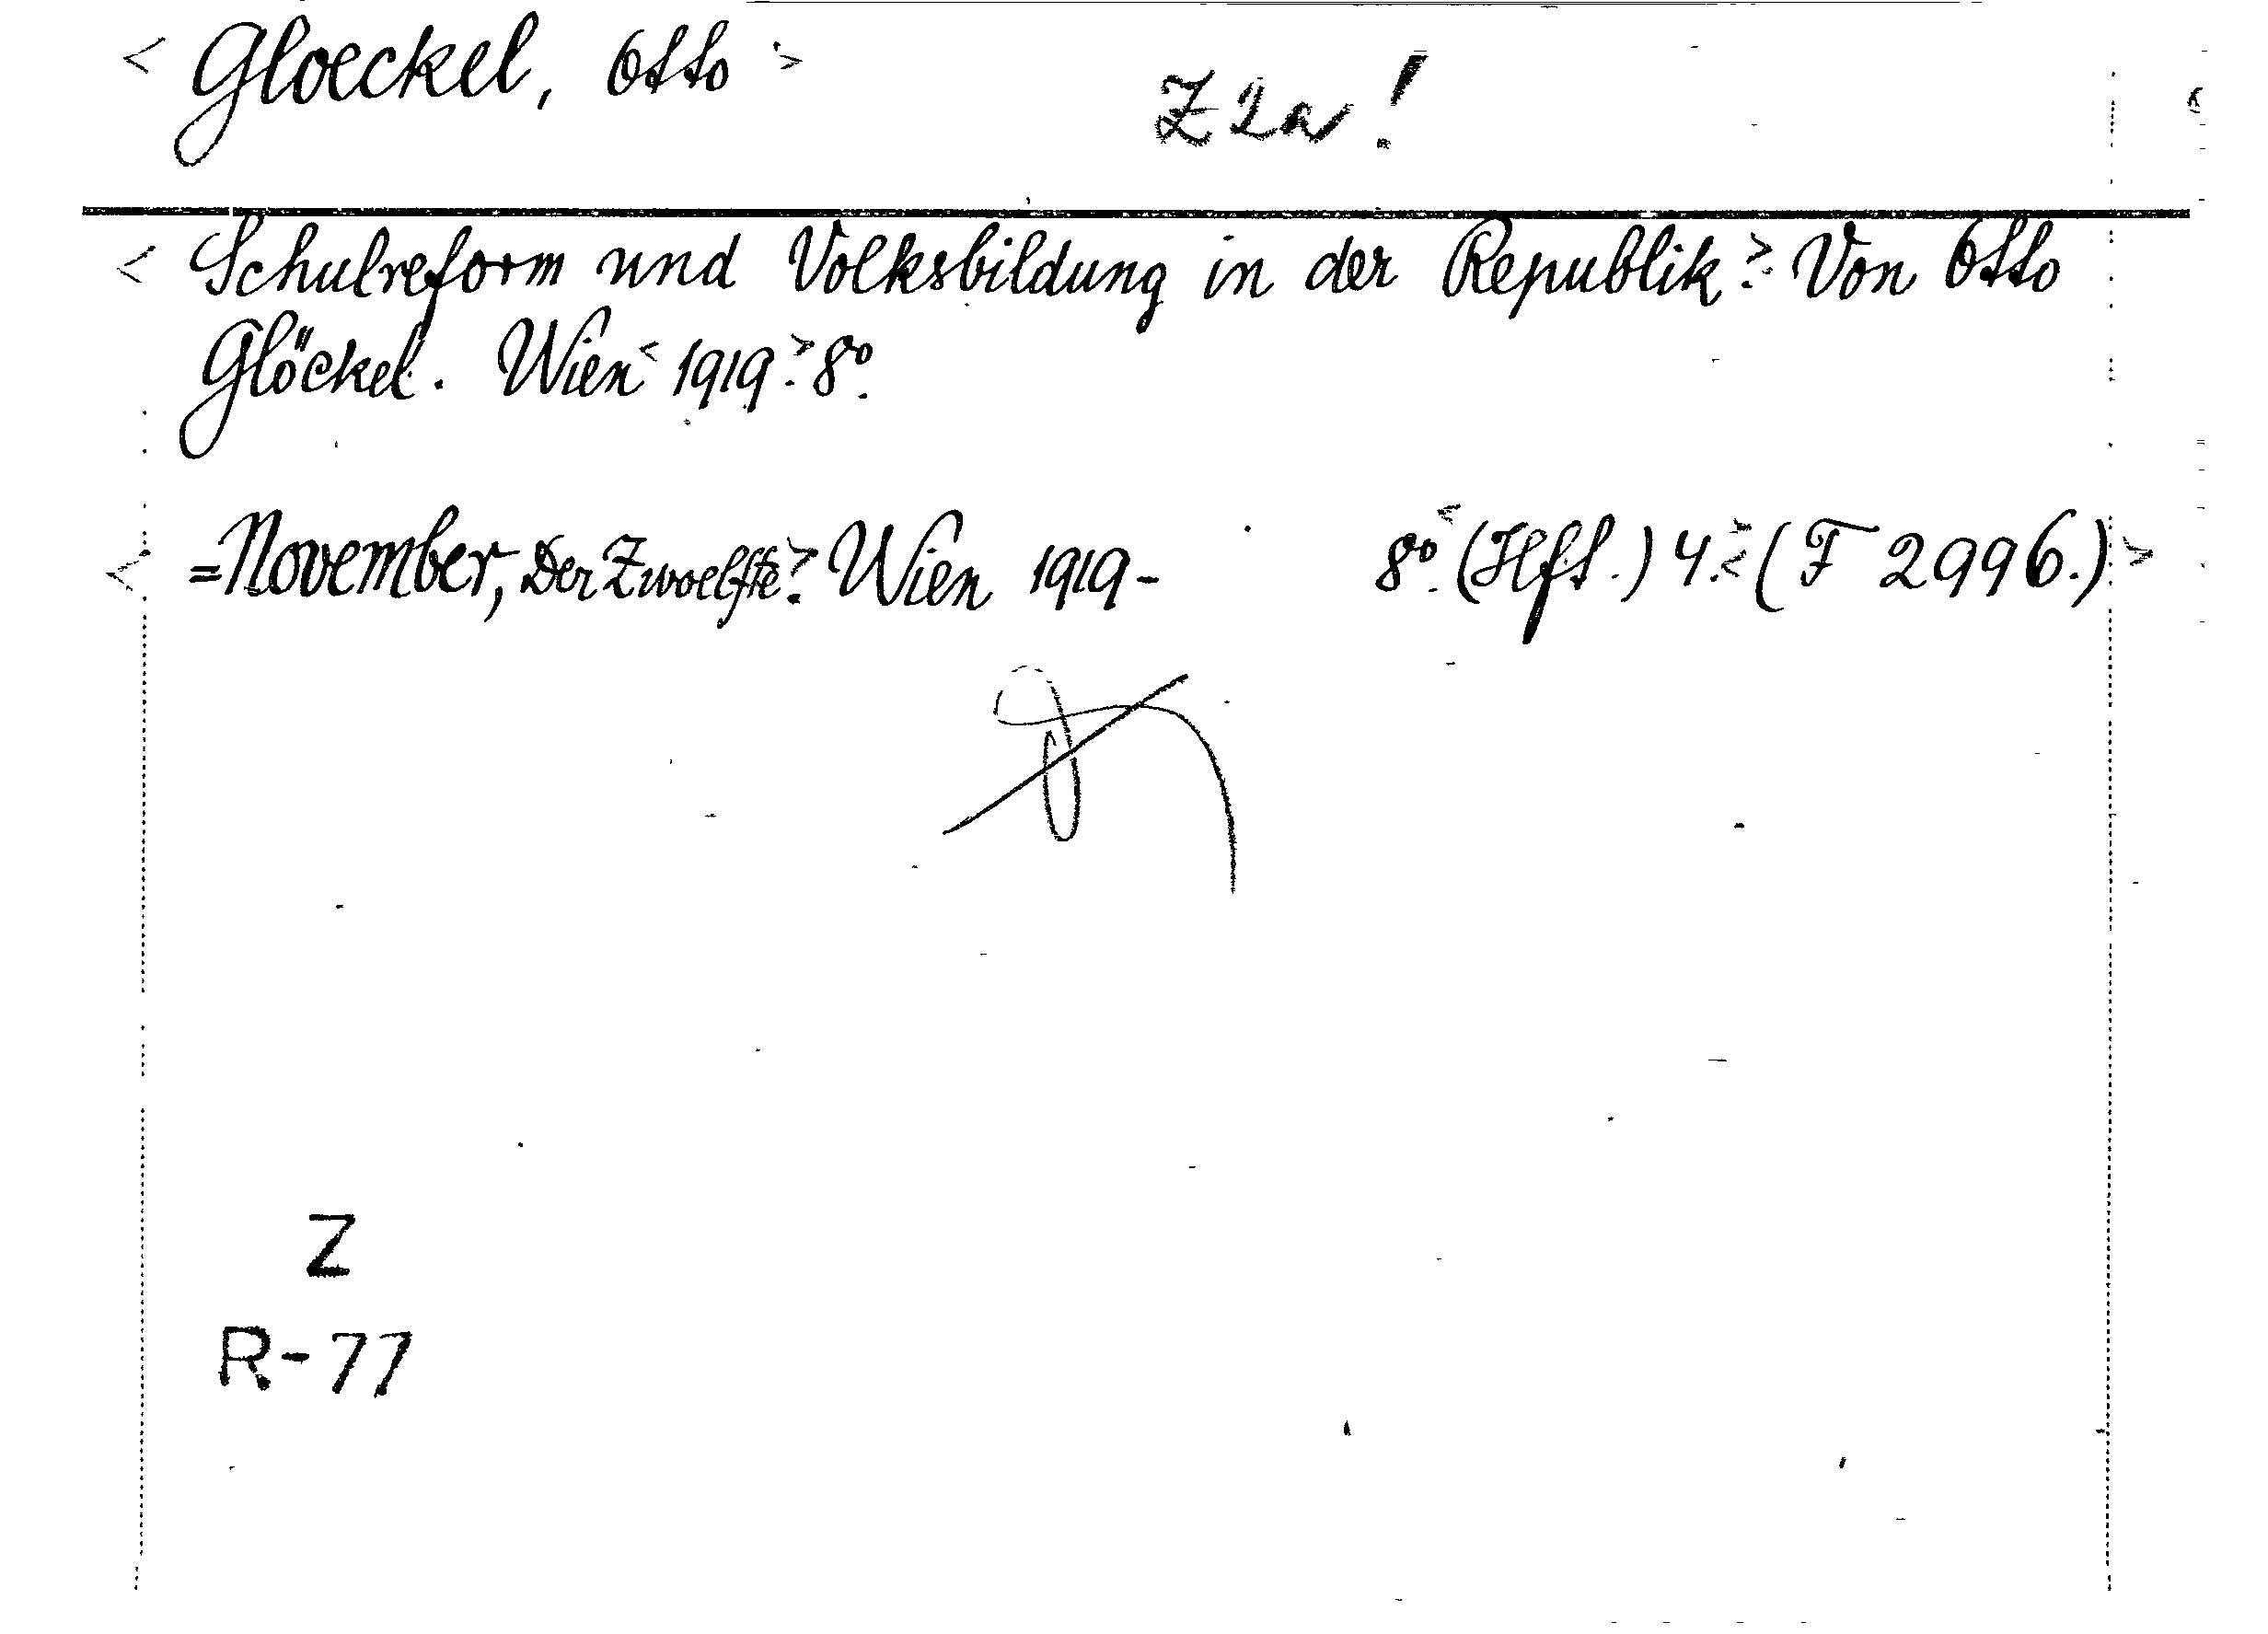 < Gloeckel, Otto >
Z 2a !
< Schulreform und Volksbildung in der Republik >. Von Otto
Glöckel. Wien < 1919 >. 8°.
< = November, Der Zwoelfte >. Wien 1919- 8°. < (Hft.) 4. > < (F 2996.) >
Z
R-77